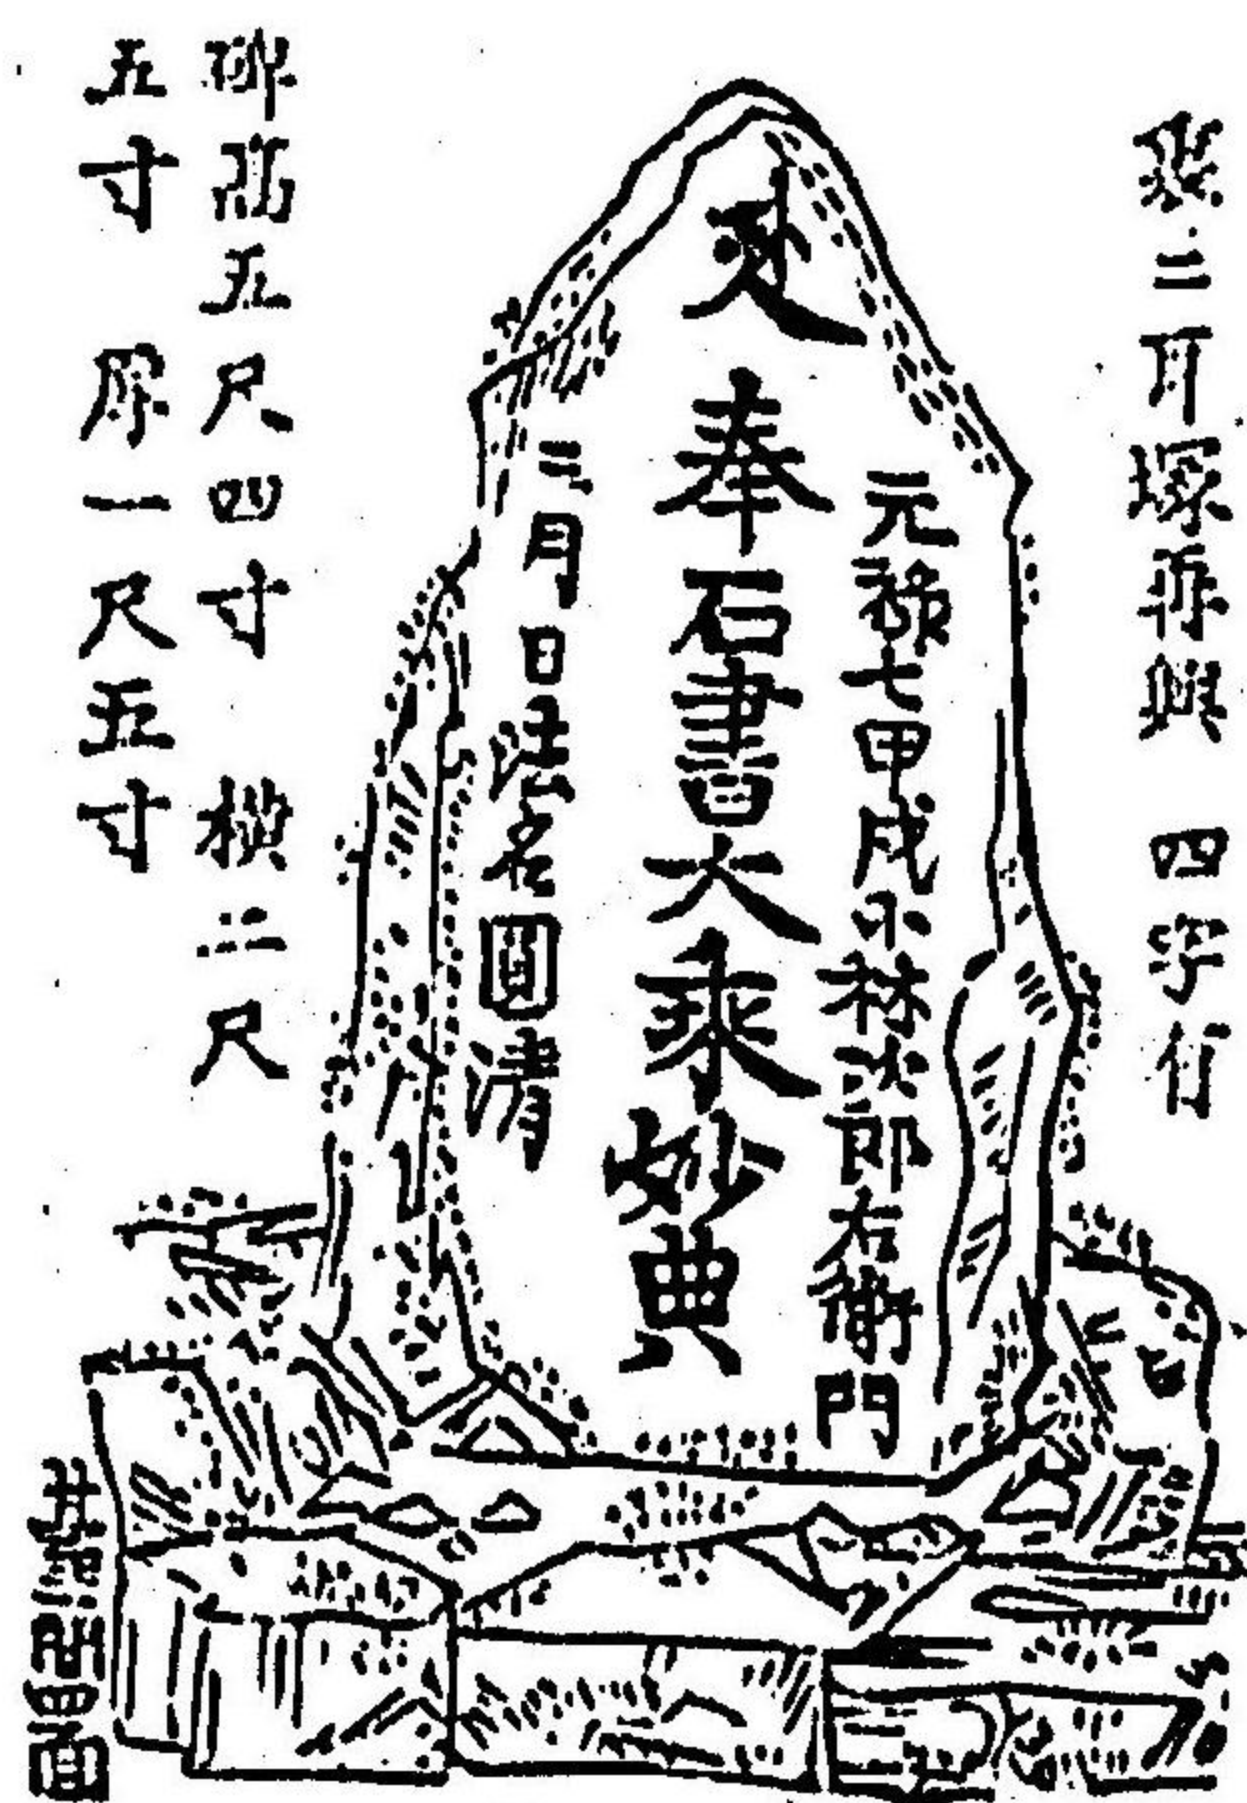 裏ニ耳塚再興 四字有
元禄七甲戌小林次郎右衛門
奉石書大乗妙典
三月日法名圓清
碑高五尺四寸 横二尺
五寸 厚一尺五寸